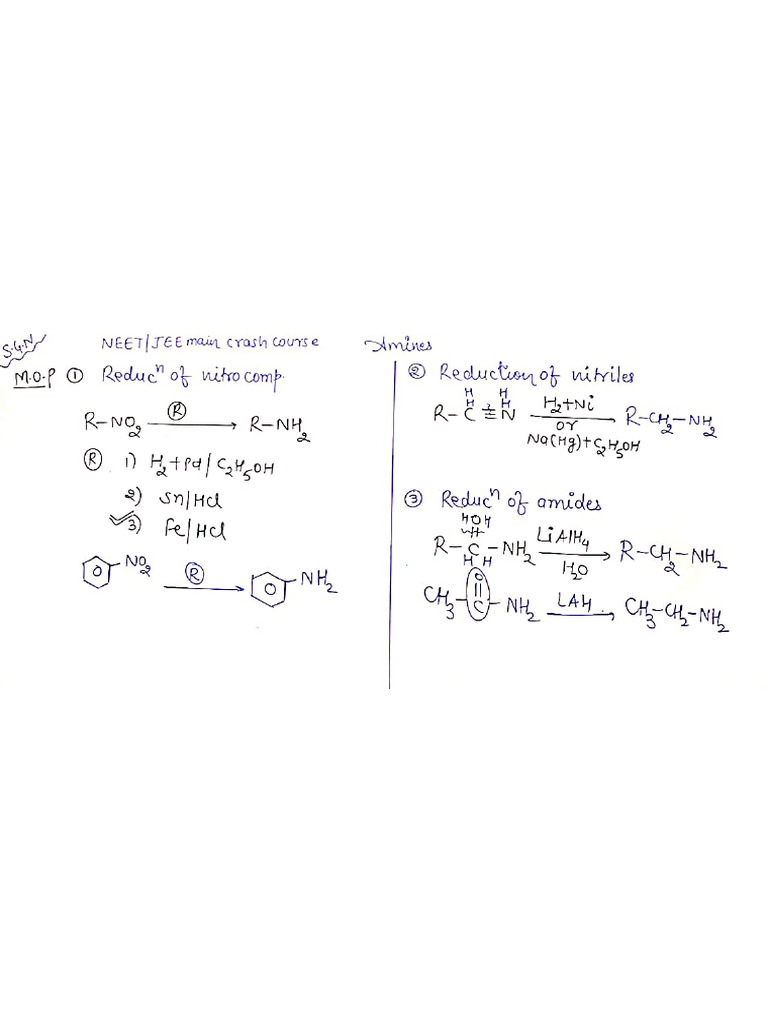 S.G.N
NEET/JEE main crash course Amines
M.O.P ① Reducⁿ of nitro comp.
R-NO₂ Ⓡ → R-NH₂
Ⓡ 1) H₂+Pd/C₂H₅OH
2) Sn/HCl
3) Fe/HCl
NO₂ Ⓡ → NH₂
② Reduction of nitriles
H H
H H
R-C≡N H₂+Ni → R-CH₂-NH₂
or
Na(Hg)+C₂H₅OH
③ Reducⁿ of amides
HOH
R-C-NH₂ LiAlH₄ → R-CH₂-NH₂
H H H₂O
O
CH₃-C-NH₂ LAH → CH₃-CH₂-NH₂